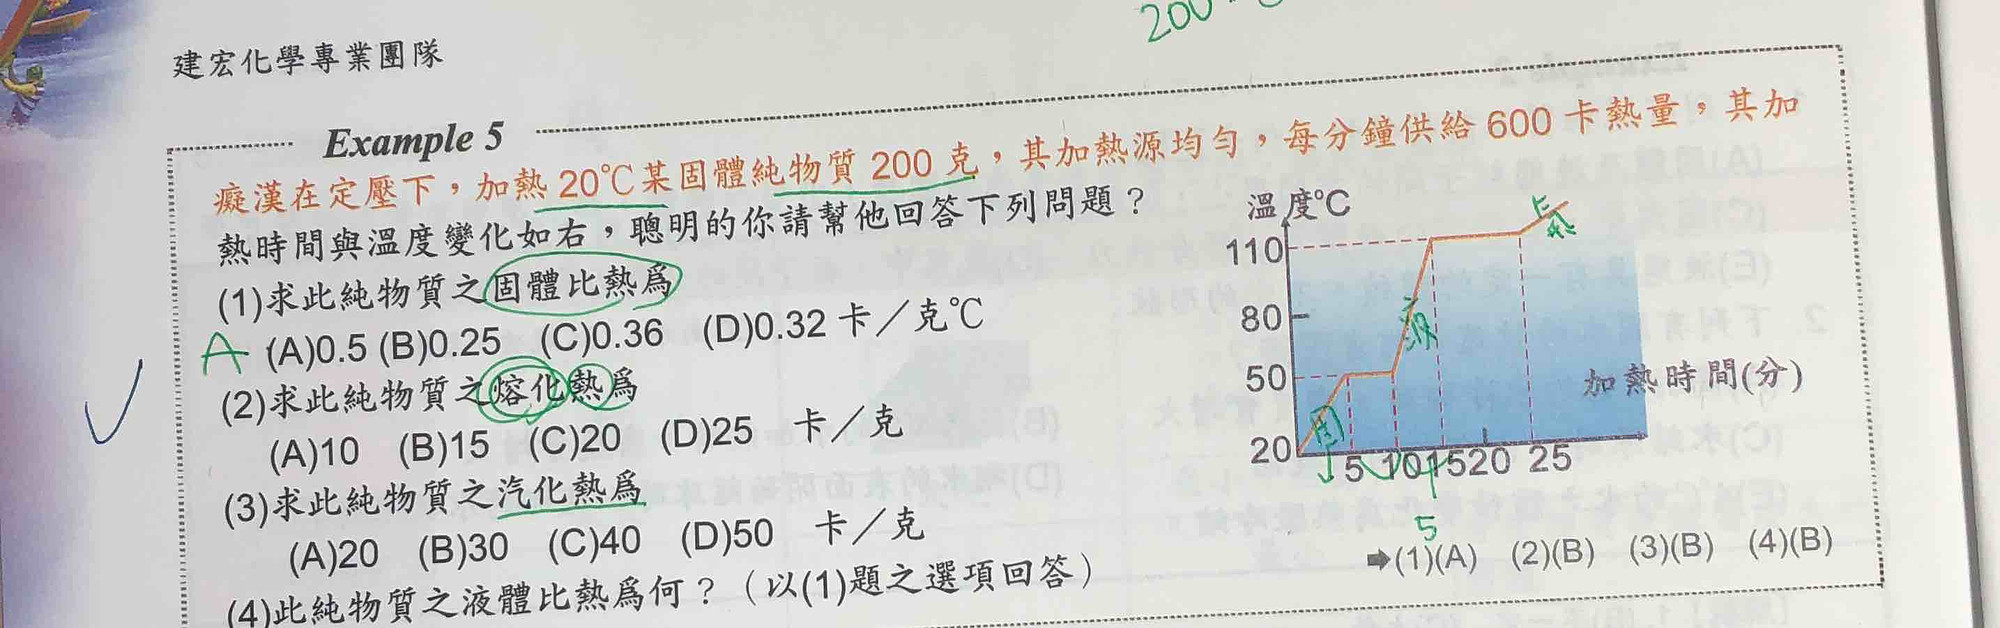 200
建宏化學專業團隊
Example 5
癡漢在定壓下，加熱 20℃某固體純物質 200 克，其加熱源均勻，每分鐘供給 600 卡熱量，其加
熱時間與溫度變化如右，聰明的你請幫他回答下列問題？
(1)求此純物質之固體比熱爲
A (A)0.5 (B)0.25 (C)0.36 (D)0.32 卡／克℃
(2)求此純物質之熔化熱爲
(A)10 (B)15 (C)20 (D)25 卡／克
(3)求此純物質之汽化熱爲
(A)20 (B)30 (C)40 (D)50 卡／克
(4)此純物質之液體比熱爲何？（以(1)題之選項回答）
溫度℃
110
80
50
20
5 10 15 20 25
加熱時間(分)
固
液
5
➡(1)(A) (2)(B) (3)(B) (4)(B)